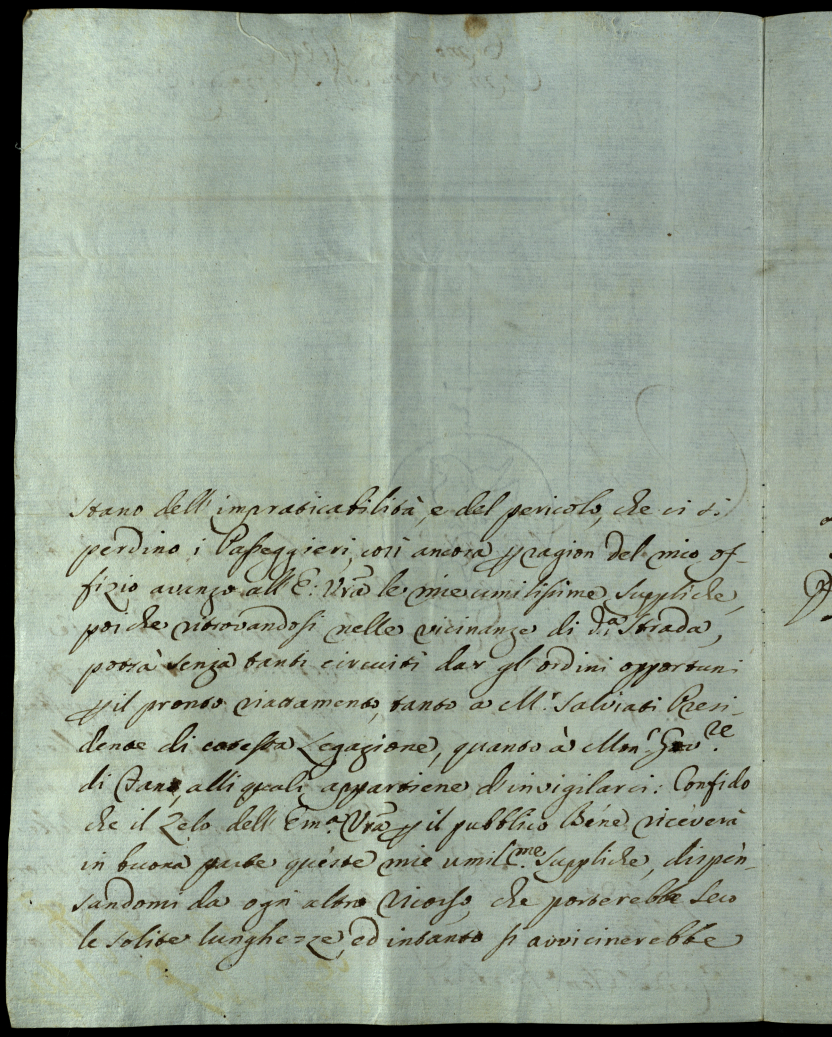 stano dell'impraticabilità, e del pericolo, che ci si
perdino i Passeggieri, così ancora p ragion del mio of-
fizio avanzo all'E: Vrã le mie umilissime suppliche,
poiche ritrovandosi nelle vicinanze di d.ª Strada,
potrà senza tanti circuiti dar gl'ordini opportuni
p il pronto riattamento, tanto a M.r Salviati Presi-
dente di cotesta Legazione, quanto à Mon.r Gov.re
di Fano, alli quali appartiene d'invigilarci: Confido
che il Zelo dell'Em.ª Vrã p il pubblico Bene riceverà
in buona parte queste mie umil.me suppliche, dispen-
sandomi da ogni altro ricorso, che porterebbe seco
le solite lunghezze, ed intanto si avvicinerebbe